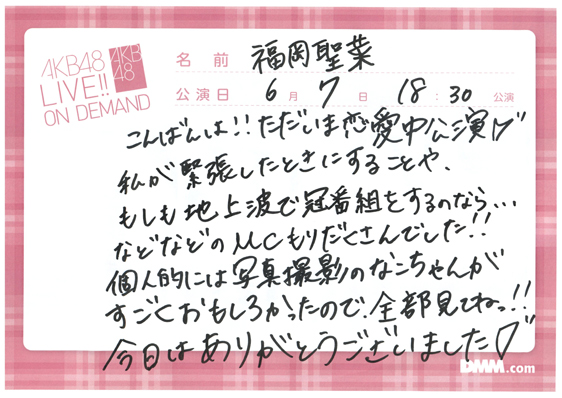 AKB48
LIVE!!
ON DEMAND
AKB
48
名前 福岡聖菜
公演日 6月7日 18:30 公演
こんばんは!!ただいま恋愛中公演!!
私が緊張したときにすることや、
もしも地上波で冠番組をするのなら…
などなどのMCもりだくさんでした!!
個人的には写真撮影のなこちゃんが
すごくおもしろかったので、全部見てねっ!!
今日はありがとうございました♡
DMM.com